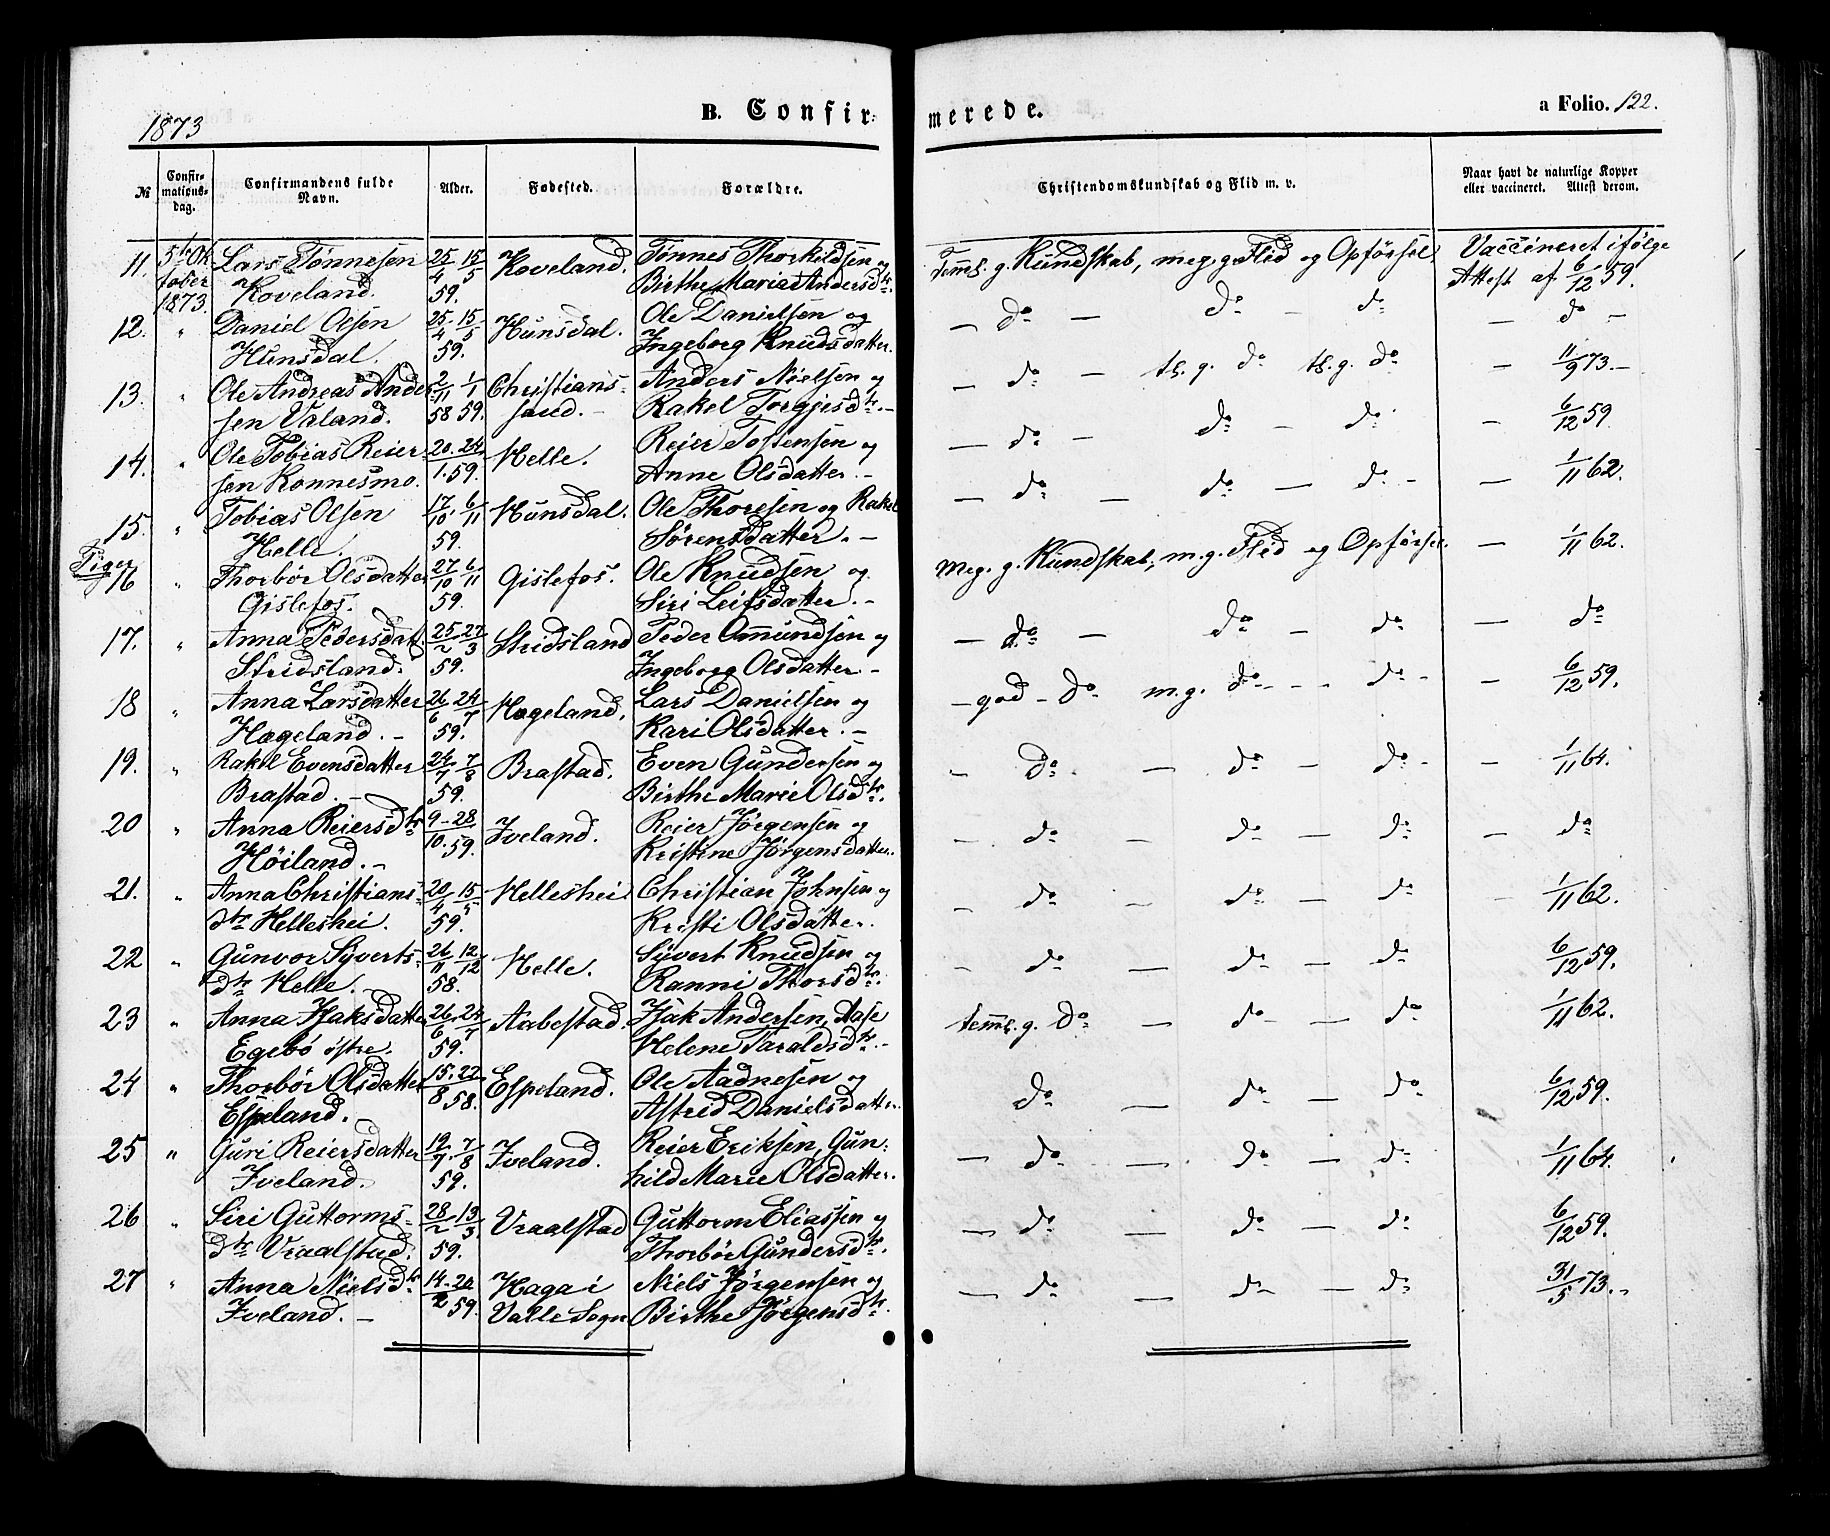 1873
B. Confir-
merede.
a Folio. 122.
№
Confir-
mations-
dag.
Confirmandens fulde
Navn.
Alder.
Fødested.
Forældre.
Christendomskundskab og Flid m. v.
Naar havt de naturlige Kopper
eller vaccineret. Attest derom.
11. 5te Ok- Lars Tønnesen 25/4 15/5 Koveland. Tønnes Thorkildsen og Temml. g. Kundskab, meg. g. Flid og Opførsel Vaccineret ifølge
tober Koveland. 59. Birthe Maria Andersdtr. Attest af 6/12 59.
1873.
12. " Daniel Olsen 25/4 15/5 Hunsdal. Ole Danielsen og — do — do — do — do —
Hunsdal. 59. Ingeborg Knudsdatter.
13. " Ole Andreas Ander 2/11 1/1 Christians- Anders Nielsen og — do — th. g. do th. g. do — 11/9 73. —
sen Valand. 58 59. sand. — Rakel Torgjisdtr. —
14. " Ole Tobias Reier- 20. 24. Helle. Reier Tostensen og — do — do — do — 6/12 59
sen Konnesmo. 1. 59. Anne Olsdatter. —
15. " Tobias Olsen 17/10. 6/11 Hunsdal. Ole Thoresen og Rakel — do — do — do — — 1/11 62.
Helle. 59 Sørensdatter. —
Piger
16 " Thorbør Olsdatter 27/10 6/11 Gislefos. Ole Knudsen og Meg. g. Kundskab, m. g. Flid og Opførsel. — 1/11 62.
Gislefos. 59. Siri Leifsdatter. —
17. " Anna Pedersdat. 25/2 27/3 Stridsland Peder Omundsen og — do — do — do — do
Stridsland. 59. Ingeborg Olsdatter —
18 " Anna Larsdatter 26/6 24/7 Hægeland. Lars Danielsen og — god — do m. g. do — — do — — 6/12 59.
Hægeland. — 59. Kari Olsdatter. —
19. " Rakel Evensdatter 24/7 7/8 Brastad. Even Gundersen og — do. — do — do — — 1/11 64.
Brastad. — 59. Birthe Marie Olsdtr.
20 " Anna Reiersdtr 9 — 28 Iveland. Reier Jørgensen og — do — do — do — do
Høiland. — 10. 59. Kristine Jørgensdatter.
21. " Anna Christians- 20/4 15/5 Helleshei Christian Johnsen og — do — do — do 1/11 62.
dtr Helleshei. 59. Kristi Olsdatter.
22 " Gunvor Syverts- 26/11 12/12 Helle. Syvert Knudsen og — do — do — do 6/12 59.
dtr Helle. — 58. Ranni Thorsdtr.
23 " Anna Isaksdatter 26/6 24/7 Aabestad. Isak Andersen, Aase temml. g. do — do — do 1/11 62.
Egebø østre. 59. Helene Taraldsdtr. —
24 " Thorbør Olsdatter 15. 22. Espeland. Ole Aadnesen og do — do — do 6/12 59.
Espeland. 8 58. Astrid Danielsdatter.
25 " Guri Reiersdatter 12/7. 7/8 Iveland. Reier Eriksen, Gun- — do — do — do 1/11 64.
Iveland. 59. hild Marie Olsdatter.
26 " Siri Guttorms- 28/2. 13/3. Vraalstad Guttorm Eliassen og — do — do — do 6/12 59.
dtr Vraalstad. 59. Thorbør Gundersdtr.
27 " Anna Nielsdtr 14 — 20 Haga i Niels Jørgensen og — do — do — do 31/5 73. —
Iveland. — 2 59. Valle Sogn Birthe Jørgensdtr.